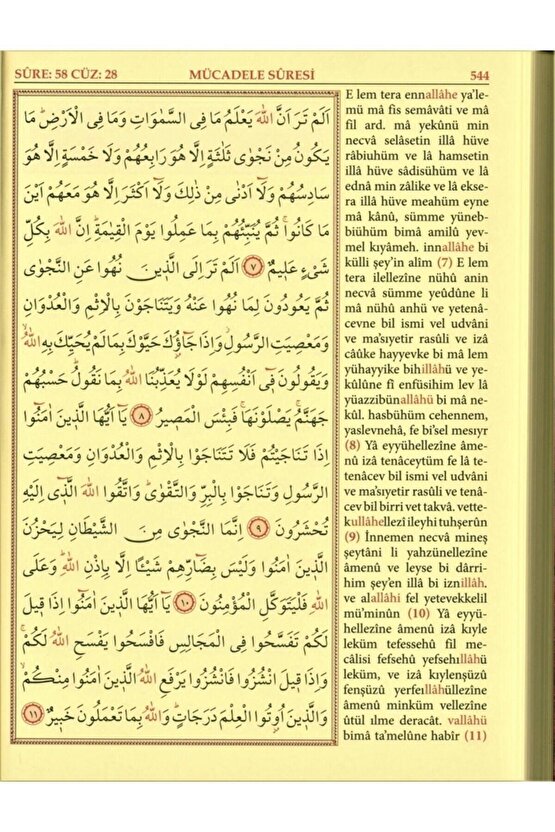 SÛRE: 58 CÜZ: 28 MÜCADELE SÛRESİ 544
اَلَمْ تَرَ اَنَّ اللّٰهَ يَعْلَمُ مَا فِي السَّمٰوَاتِ وَمَا فِي الْاَرْضِۜ مَا
يَكُونُ مِنْ نَجْوٰى ثَلٰثَةٍ اِلَّا هُوَ رَابِعُهُمْ وَلَا خَمْسَةٍ اِلَّا هُوَ
سَادِسُهُمْ وَلَٓا اَدْنٰى مِنْ ذٰلِكَ وَلَٓا اَكْثَرَ اِلَّا هُوَ مَعَهُمْ اَيْنَ
مَا كَانُواۚ ثُمَّ يُنَبِّئُهُمْ بِمَا عَمِلُوا يَوْمَ الْقِيٰمَةِۜ اِنَّ اللّٰهَ بِكُلِّ
شَيْءٍ عَل۪يمٌ ﴿٧﴾ اَلَمْ تَرَ اِلَى الَّذ۪ينَ نُهُوا عَنِ النَّجْوٰى
ثُمَّ يَعُودُونَ لِمَا نُهُوا عَنْهُ وَيَتَنَاجَوْنَ بِالْاِثْمِ وَالْعُدْوَانِ
وَمَعْصِيَتِ الرَّسُولِۘ وَاِذَا جَٓاؤُ۫كَ حَيَّوْكَ بِمَا لَمْ يُحَيِّكَ بِهِ اللّٰهُۙ
وَيَقُولُونَ ف۪ٓي اَنْفُسِهِمْ لَوْلَا يُعَذِّبُنَا اللّٰهُ بِمَا نَقُولُۜ حَسْبُهُمْ
جَهَنَّمُۚ يَصْلَوْنَهَاۚ فَبِئْسَ الْمَص۪يرُ ﴿٨﴾ يَٓا اَيُّهَا الَّذ۪ينَ اٰمَنُٓوا
اِذَا تَنَاجَيْتُمْ فَلَا تَتَنَاجَوْا بِالْاِثْمِ وَالْعُدْوَانِ وَمَعْصِيَتِ
الرَّسُولِ وَتَنَاجَوْا بِالْبِرِّ وَالتَّقْوٰىۜ وَاتَّقُوا اللّٰهَ الَّذ۪ٓي اِلَيْهِ
تُحْشَرُونَ ﴿٩﴾ اِنَّمَا النَّجْوٰى مِنَ الشَّيْطَانِ لِيَحْزُنَ
الَّذ۪ينَ اٰمَنُوا وَلَيْسَ بِضَٓارِّهِمْ شَيْـًٔا اِلَّا بِاِذْنِ اللّٰهِۜ وَعَلَى
اللّٰهِ فَلْيَتَوَكَّلِ الْمُؤْمِنُونَ ﴿١٠﴾ يَٓا اَيُّهَا الَّذ۪ينَ اٰمَنُٓوا اِذَا ق۪يلَ
لَكُمْ تَفَسَّحُوا فِي الْمَجَالِسِ فَافْسَحُوا يَفْسَحِ اللّٰهُ لَكُمْۚ
وَاِذَا ق۪يلَ انْشُزُوا فَانْشُزُوا يَرْفَعِ اللّٰهُ الَّذ۪ينَ اٰمَنُوا مِنْكُمْۙ
وَالَّذ۪ينَ اُو۫تُوا الْعِلْمَ دَرَجَاتٍۜ وَاللّٰهُ بِمَا تَعْمَلُونَ خَب۪يرٌ ﴿١١﴾
E lem tera ennallâhe ya'le-
mü mâ fis semâvâti ve mâ
fil ard. mâ yekûnü min
necvâ selâsetin illâ hüve
râbiuhüm ve lâ hamsetin
illâ hüve sâdisühüm ve lâ
ednâ min zâlike ve lâ ekse-
ra illâ hüve meahüm eyne
mâ kânû, sümme yüneb-
biühüm bimâ amilû yev-
mel kıyâmeh. innallâhe bi
külli şey'in alîm (7) E lem
tera ilellezîne nühû anin
necvâ sümme yeûdûne li
mâ nühû anhü ve yetenâ-
cevne bil ismi vel udvâni
ve ma'sıyetir rasûli ve izâ
câûke hayyevke bi mâ lem
yühayyike bihillâhü ve ye-
kûlûne fî enfüsihim lev lâ
yüazzibünallâhü bi mâ ne-
kûl. hasbühüm cehennem,
yaslevnehâ, fe bi'sel mesıyr
(8) Yâ eyyühellezîne âme-
nû izâ tenâceytüm fe lâ te-
tenâcev bil ismi vel udvâni
ve ma'sıyetir rasûli ve tenâ-
cev bil birri vet takvâ. vette-
kullâhellezî ileyhi tuhşerûn
(9) İnnemen necvâ mineş
şeytâni li yahzünellezîne
âmenû ve leyse bi dârri-
him şey'en illâ bi iznillâh.
ve alallâhi fel yetevekkelil
mü'minûn (10) Yâ eyyü-
hellezîne âmenû izâ kıyle
leküm tefessehû fil me-
câlisi fefsehû yefsehıllâhü
leküm, ve izâ kıylenşüzû
fenşüzû yerfeıllâhüllezîne
âmenû minküm vellezîne
ûtül ılme deracât. vallâhü
bimâ ta'melûne habîr (11)